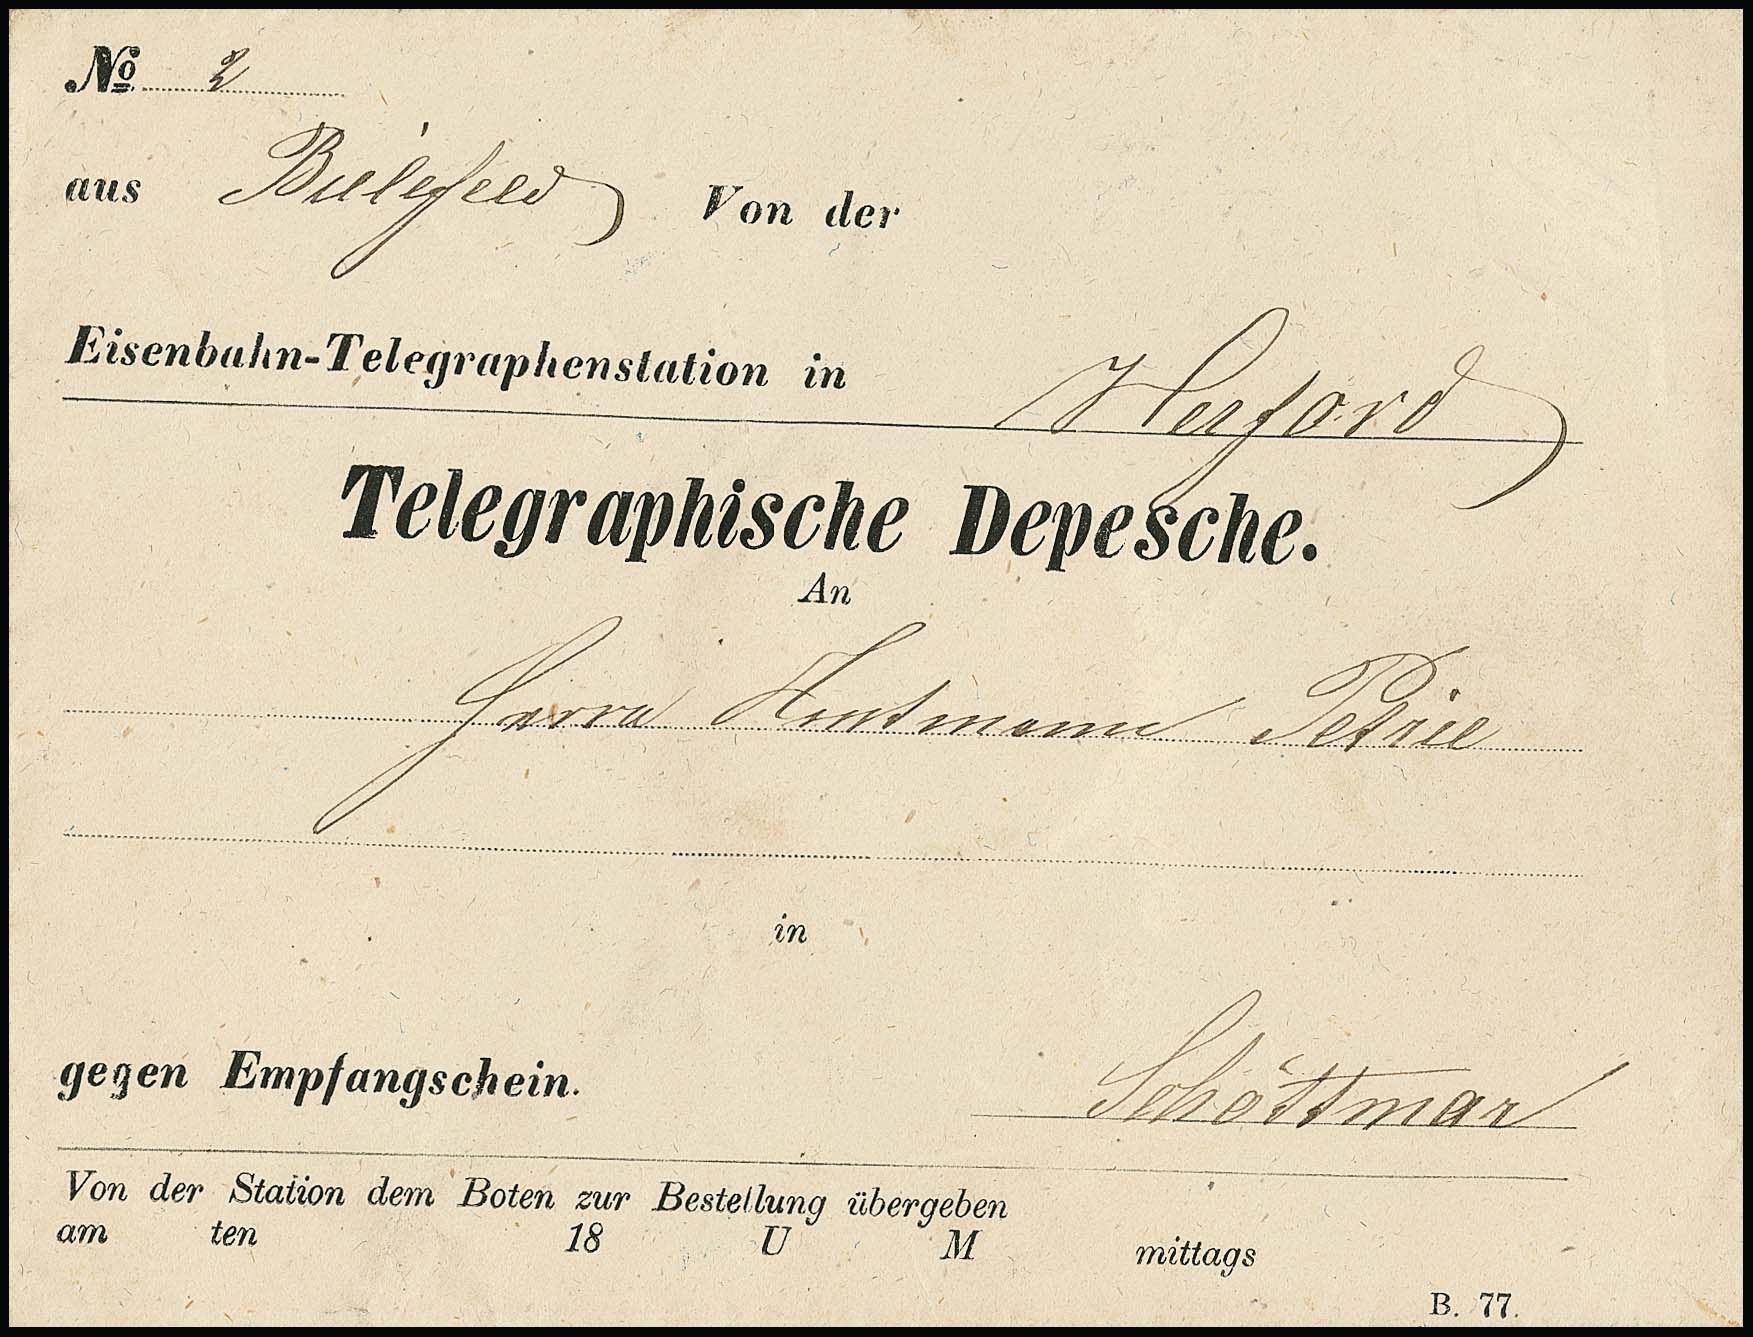 № 2
aus Bielefeld Von der
Eisenbahn-Telegraphenstation in Herford
Telegraphische Depesche.
An
Herrn Petrie
in
gegen Empfangschein. Schöttmar
Von der Station dem Boten zur Bestellung übergeben
am ten 18 U M mittags
B. 77.